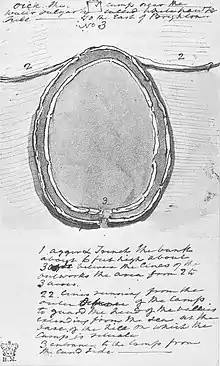 Dick the camp near the
water vulgarly called
to the East of Brighton
No 3
2
2
3
1 a ground Trench the bank
about 6 feet high about
30 between the lines of the
outworks the area from 2 to
3 acres.
22 lines running from the
outer of the Camp
to guard the head of the vallies
extending from the sea at the
base of the hill on which the
Camp is situate
3 entrance to the Camp from
the Land side
B.M.